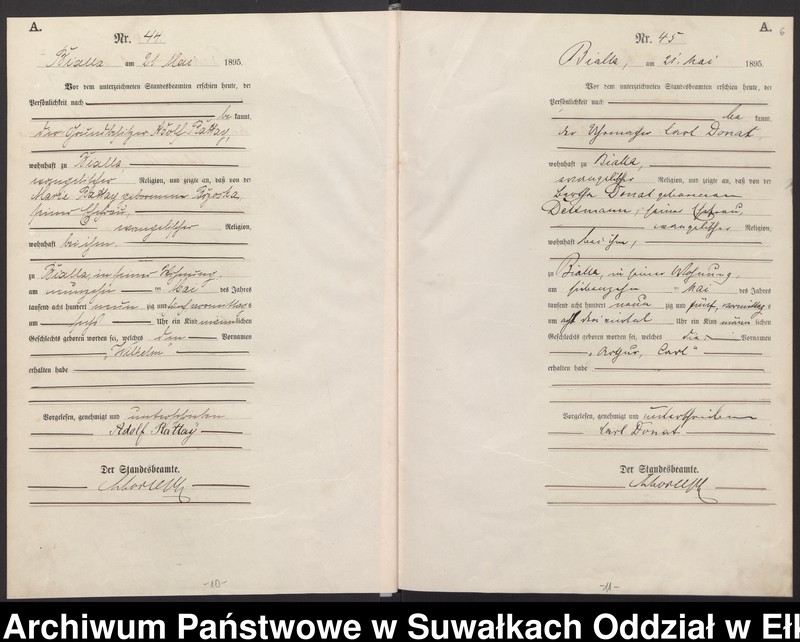 A.
Nr. 44
Bialla am 21. Mai 1895.
Vor dem unterzeichneten Standesbeamten erschien heute, der
Persönlichkeit nach
be kannt,
der Grundbesitzer Adolf Rattay,
wohnhaft zu Bialla
evangelischer Religion, und zeigte an, daß von der
Marie Rattay geborenen
seiner Ehefrau,
evangelischer Religion,
wohnhaft bei ihm,
zu Bialla, in seiner Wohnung,
am neunzehn ten Mai des Jahres
tausend acht hundert neun zig und fünf vormittags
um sechs Uhr ein Kind männlichen
Geschlechts geboren worden sei, welches den Vornamen
"Wilhelm"
erhalten habe
Vorgelesen, genehmigt und unterschrieben
Adolf Rattay
Der Standesbeamte.
-10-
A.
6
Nr. 45
Bialla, am 21. Mai 1895.
Vor dem unterzeichneten Standesbeamten erschien heute, der
Persönlichkeit nach
be kannt,
der Uhrmacher Carl Donat,
wohnhaft zu Bialla,
evangelischer Religion, und zeigte an, daß von der
Bertha Donat geborenen
Dettmann, seiner Ehefrau,
evangelischer Religion,
wohnhaft bei ihm,
zu Bialla, in seiner Wohnung,
am siebenzehn ten Mai des Jahres
tausend acht hundert neun zig und fünf, vormittags
um acht dreiviertel Uhr ein Kind männlichen
Geschlechts geboren worden sei, welches die Vornamen
"Arthur, Carl"
erhalten habe
Vorgelesen, genehmigt und unterschrieben
Carl Donat
Der Standesbeamte.
-11-
Archiwum Państwowe w Suwałkach Oddział w Eł